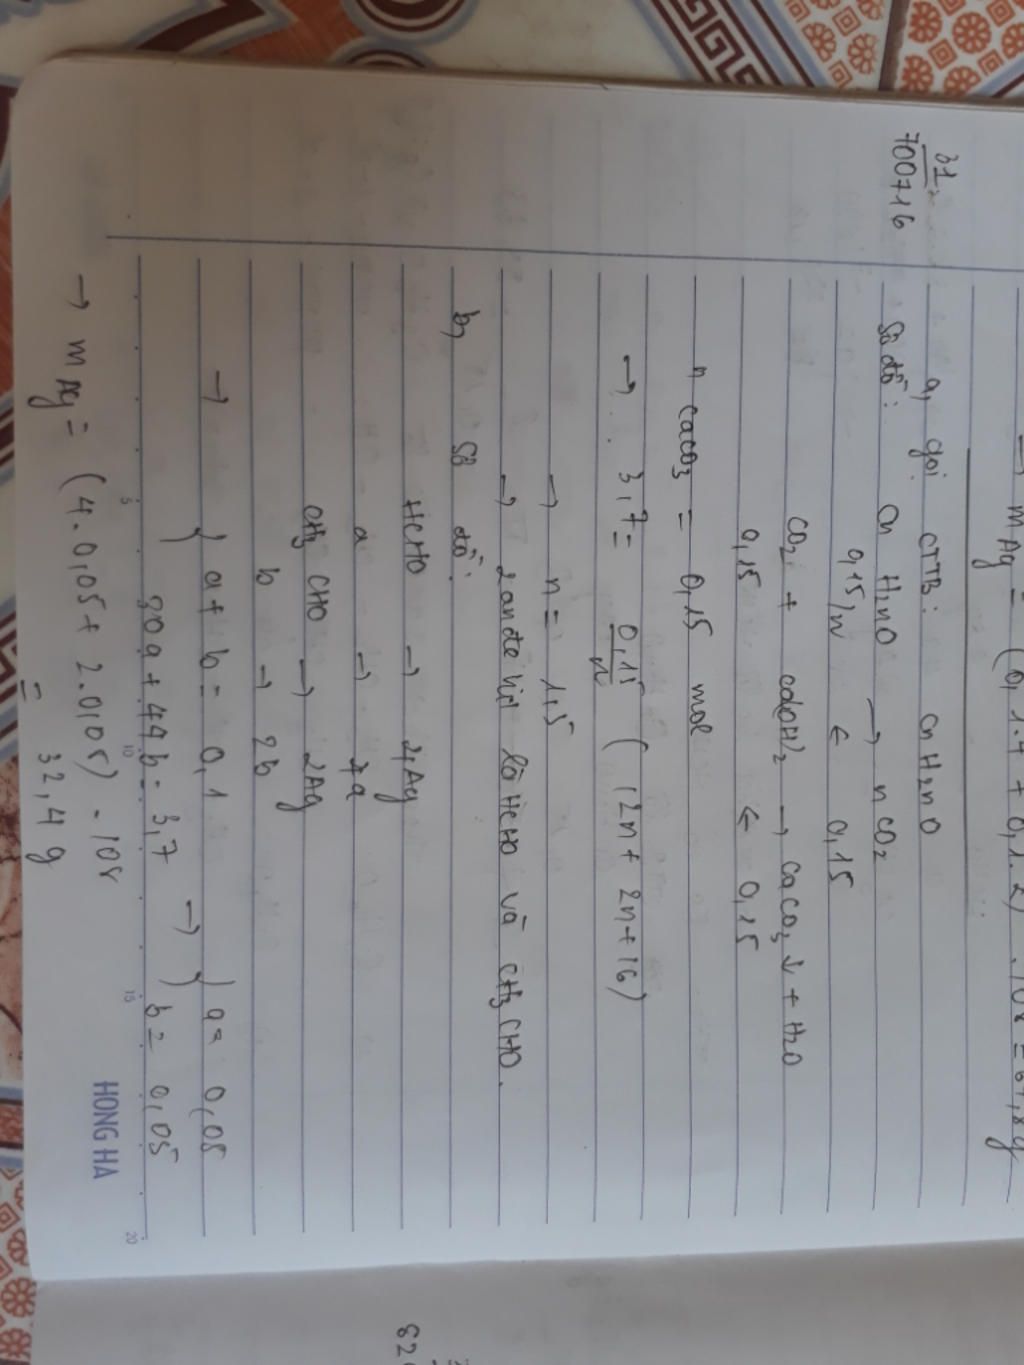 → m Ag = (0,1.4 + 0,1.2) .108 = 64,8g
31
700716
a, gọi CTTB: CnH2nO
Sơ đồ: Cn H2nO → n CO2
0,15/n ← 0,15
CO2 + Ca(OH)2 → CaCO3 ↓ + H2O
0,15 ← 0,15
n CaCO3 = 0,15 mol
→ 3,7 = 0,15/n (12n + 2n + 16)
→ n = 1,5
→ 2 andehit là HCHO và CH3 CHO.
b, Sơ đồ:
HCHO → 4Ag
a → 4a
CH3 CHO → 2Ag
b → 2b
→ { a + b = 0,1 → { a = 0,05
30a + 44b = 3,7 b = 0,05
→ m Ag = (4.0,05 + 2.0,05) . 108
= 32,4 g
5
10
15
20
HONG HA